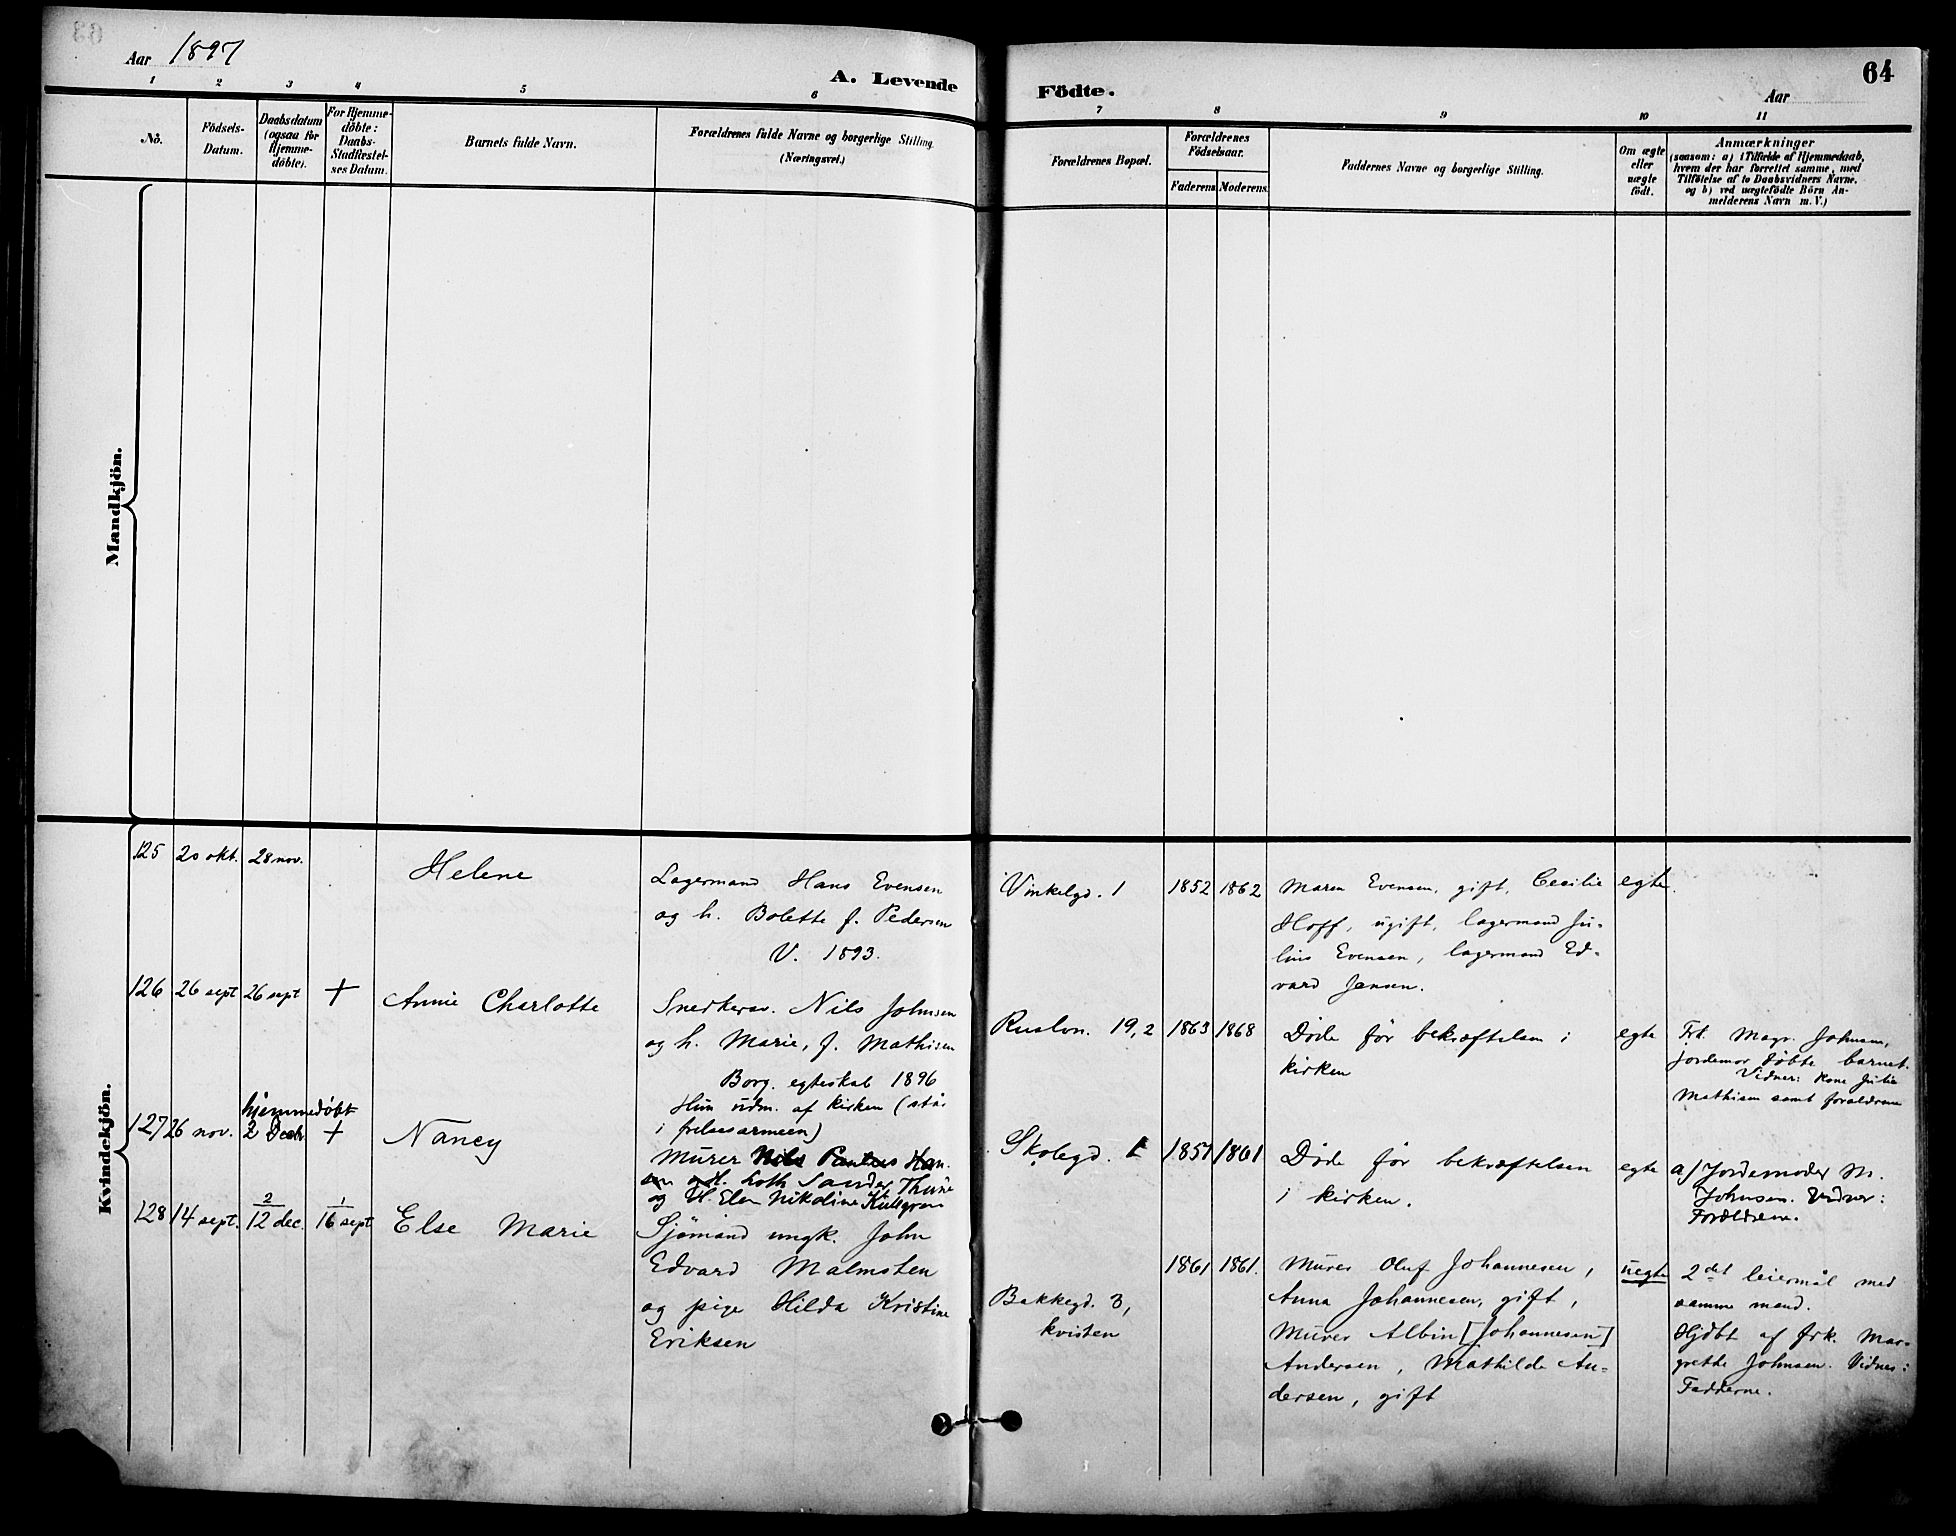 Aar 1897
A. Levende
Födte.
64
Aar
1 2 3 4 5 6 7 8 9 10 11
No.
Födsels-
Datum.
Daabsdatum
(ogsaa for
Hjemme-
döbte).
For Hjemme-
döbte:
Daabs-
Stadfæstel-
ses Datum.
Barnets fulde Navn.
Forældrenes fulde Navne og borgerlige Stilling.
(Næringsvei.)
Forældrenes Bopæl.
Forældrenes
Födselsaar.
Faderens. Moderens.
Faddernes Navne og borgerlige Stilling.
Om ægte
eller
uægte
födt.
Anmærkninger
(saasom: a) i Tilfælde af Hjemmedaab,
hvem der har forrettet samme, med
Tilföielse af to Daabsvidners Navne,
og b) ved uægtefödte Börn An-
melderens Navn m. V.)
Mandkjön.
Kvindekjön.
125 20 okt. 28 nov.
Helene
Lagermand Hans Evensen
og h. Bolette f. Pedersen
V. 1893.
Vinkelgd. 1
1852 1862
Maren Evensen, gift, Cecilie
Hoff, ugift, lagermand Ju-
lius Evensen, lagermand Ed-
vard Jensen.
egte.
126 26 sept 26 sept +
Annie Charlotte
Snedkersv. Nils Johnsen
og h. Marie, f. Mathisen
Borg. egteskab 1896
Hun udm. af kirken (står
i frelsesarmeen)
Rusløn. 19,2
1863 1868
Døde før bekræftelsen i
kirken
egte
Frk. Magr. Johnsen,
jordemor døbte barnet.
Vidner: kone Julie
Mathisen samt forældrene
127 26 nov. hjemmedøbt
2 Decbr +
Nancy
Murer Paulus Han-
sen og H. Loth Sander Thune
og H. Elen Nikoline Kullgren
Skolegd.
1857 1861
Døde før bekræftelsen
i kirken.
egte
a) Jordemoder M.
Johnsen. Vidner:
Forældrene.
128 14 sept. 2
12 dec. 1
16 sept
Else Marie
Sjømand ungk. John
Edvard Malmsten
og pige Hilda Kristine
Eriksen
Bakkegd. 3,
kvisten
1861 1861.
Murer Oluf Johannesen,
Anna Johannesen, gift,
Murer Albin [Johannesen]
Andersen, Mathilde An-
dersen, gift
uegte
2det leiermål med
samme mand.
Hjdbt af frk. Mar-
grethe Johnsen. Vidner:
Fadderne.